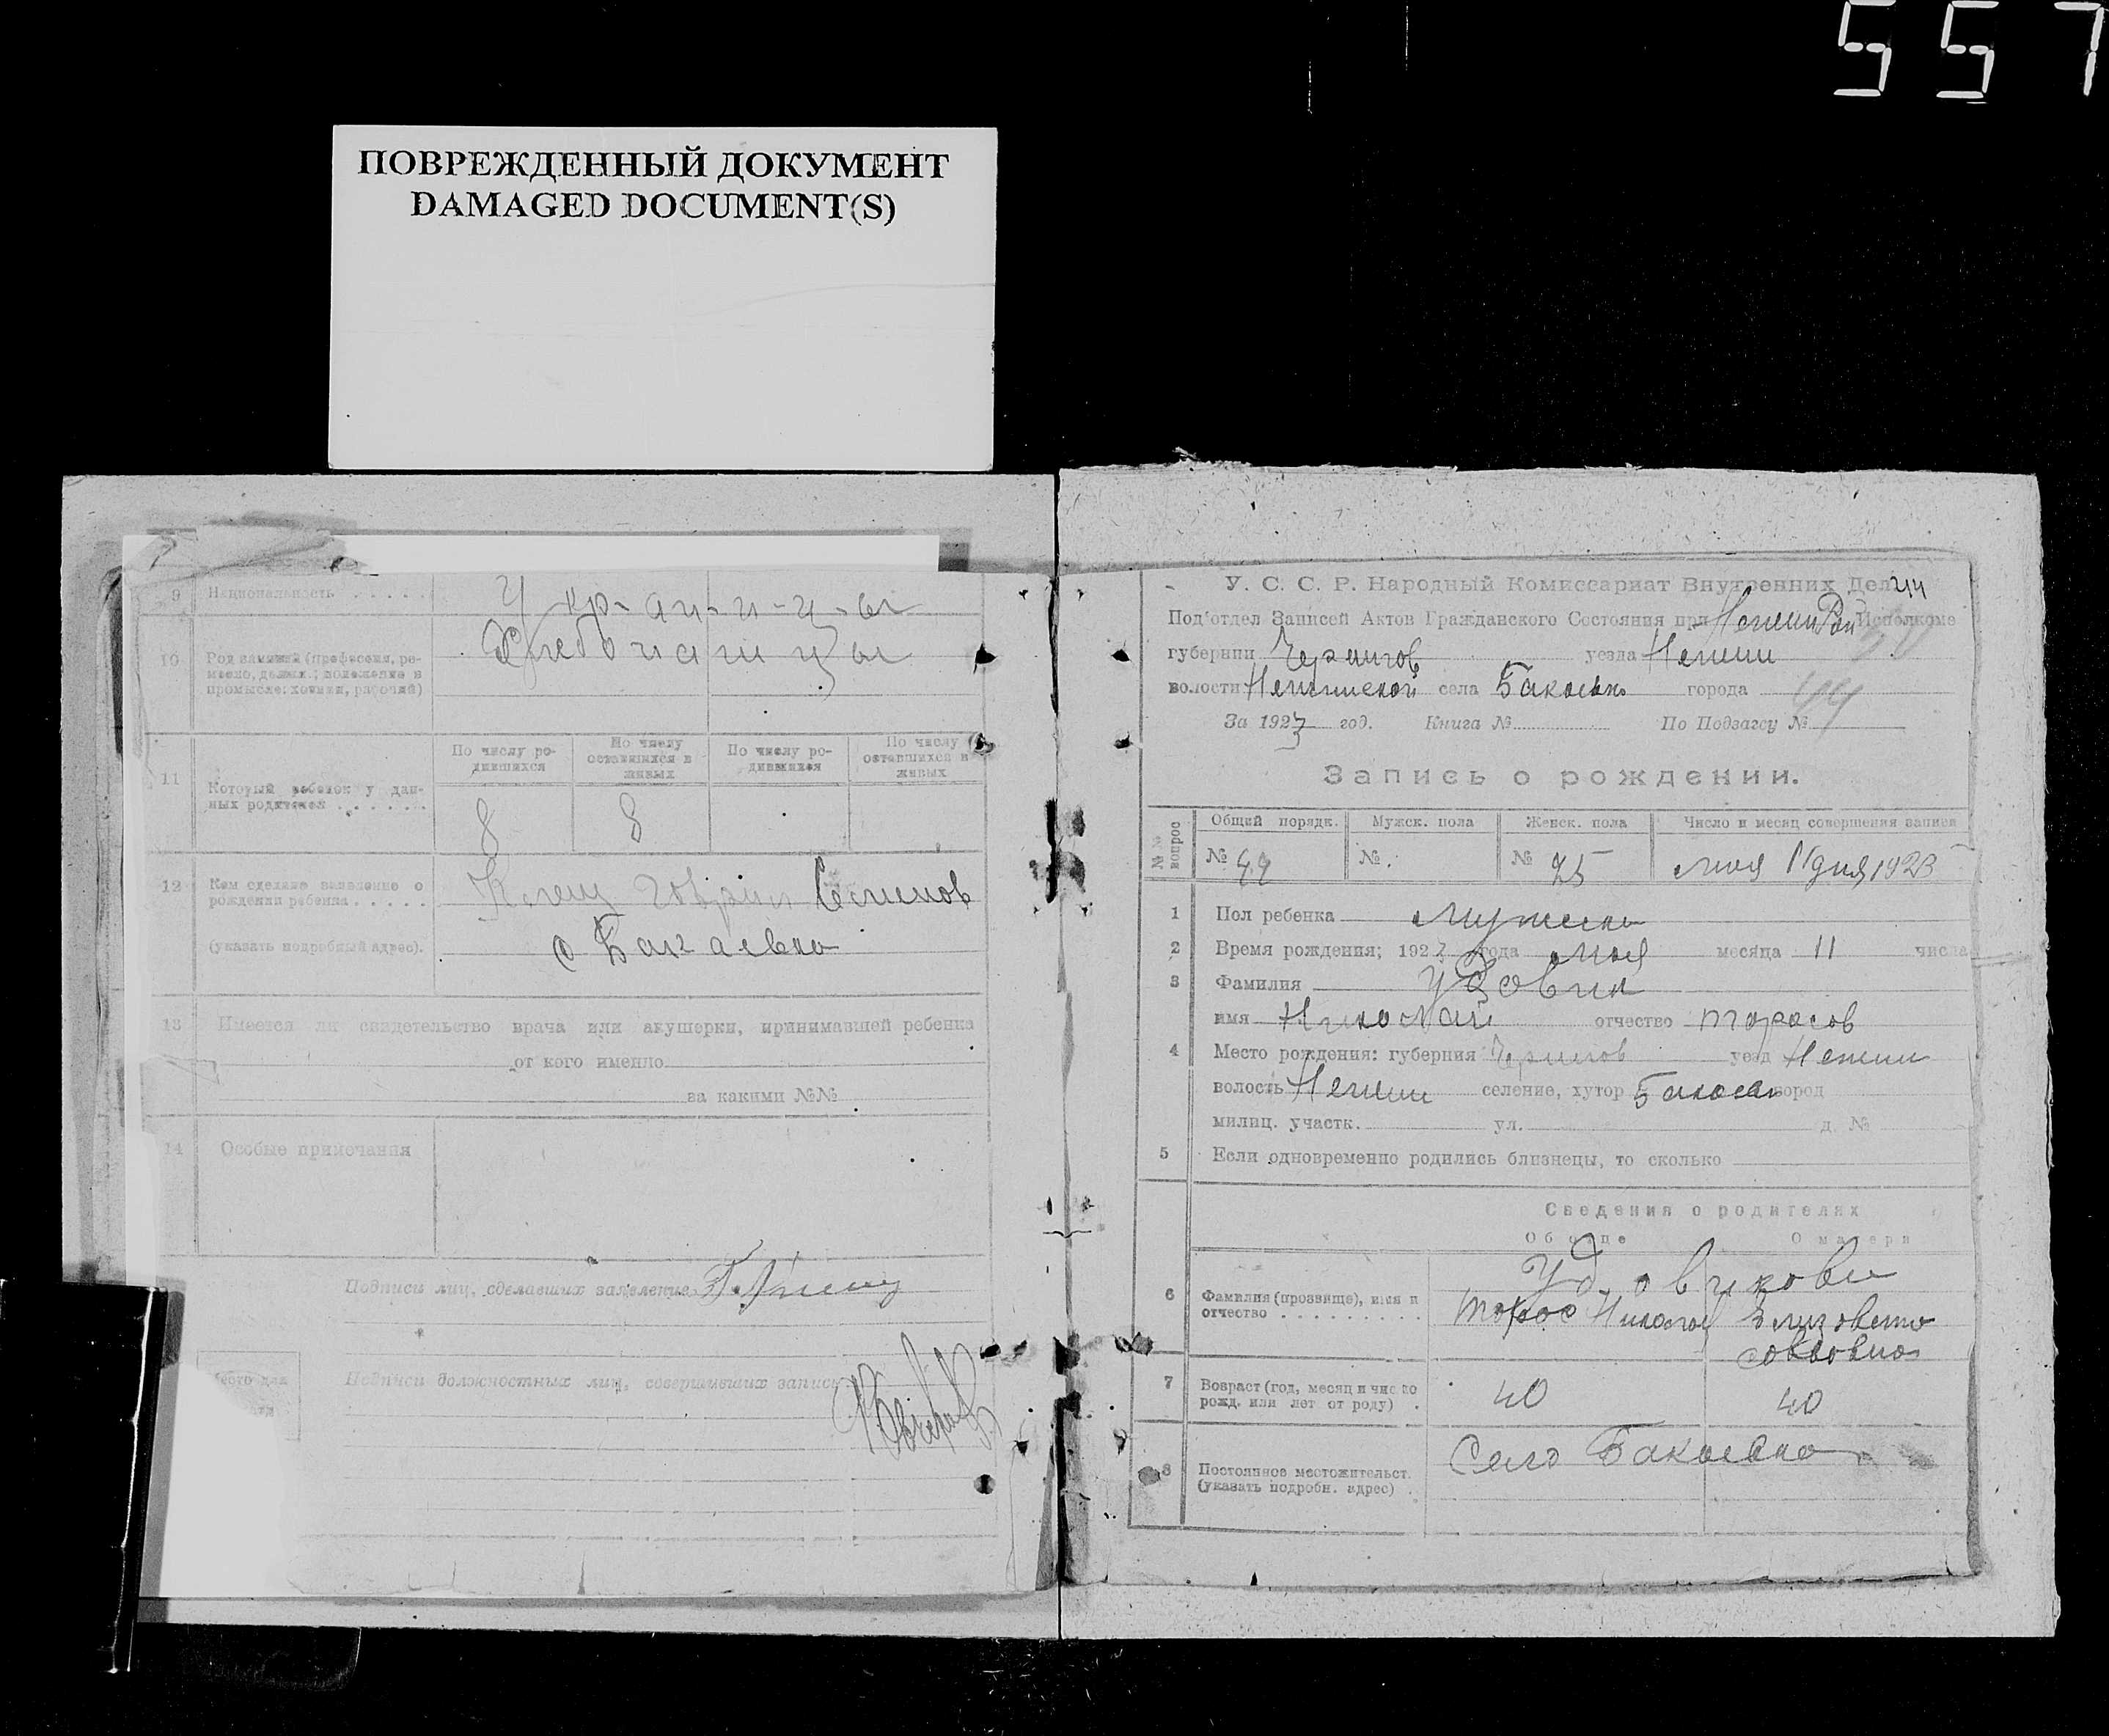 557
ПОВРЕЖДЕННЫЙ ДОКУМЕНТ
DAMAGED DOCUMENT(S)
9 Национальность . . . . . У кр-аи-н-ц-ы
10 Род занятий (профессия, ре-
месло, должн.; положение в
промысле: хозяин, рабочий)
Хлебопашцы
11 Который ребенок у дан-
ных родителей . . . . . .
По числу ро-
дившихся
По числу
оставшихся в
живых
По числу ро-
дившихся
По числу
оставшихся в
живых
8 8
12 Кем сделано заявление о
рождении ребенка . . . . .
(указать подробный адрес).
Семенов
с Бакаевка
13 Имеется ли свидетельство врача или акушерки, принимавшей ребенка
от кого именно
за какими №№
14 Особые примечания
Подписи лиц, сделавших заявление
Место для
Подписи должностных лиц, совершивших запись
У. С. С. Р. Народный Комиссариат Внутренних Дел
Под'отдел Записей Актов Гражданского Состояния при Нежин Рай Исполкоме
губернии Чернигов уезда Нежин
волости Нежинской села Бакаевка города
За 1923 год. Книга № По Подзагсу №
Запись о рождении.
№№ вопрос
Общий порядк. Мужск. пола Женск. пола Число и месяц совершения записи
№ 44 № № 25 мая 11 дня 1923
1 Пол ребенка Мужско
2 Время рождения; 1923 года мая месяца 11 числа
3 Фамилия Удовик
имя Николай отчество Тарасов
4 Место рождения: губерния Чернигов уезд Нежин
волость Нежин селение, хутор Бакаевк город
милиц. участк. ул. д. №
5 Если одновременно родились близнецы, то сколько
Сведения о родителях
Об отце О матери
6 Фамилия (прозвище), имя и
отчество . . . . . . . . .
Удовикови
Тарас Николаев Елизовета
Саввовна
7 Возраст (год, месяц и число
рожд. или лет от роду) .
40 40
8 Постоянное местожительст.
(указать подробн. адрес) .
Село Бакаевка